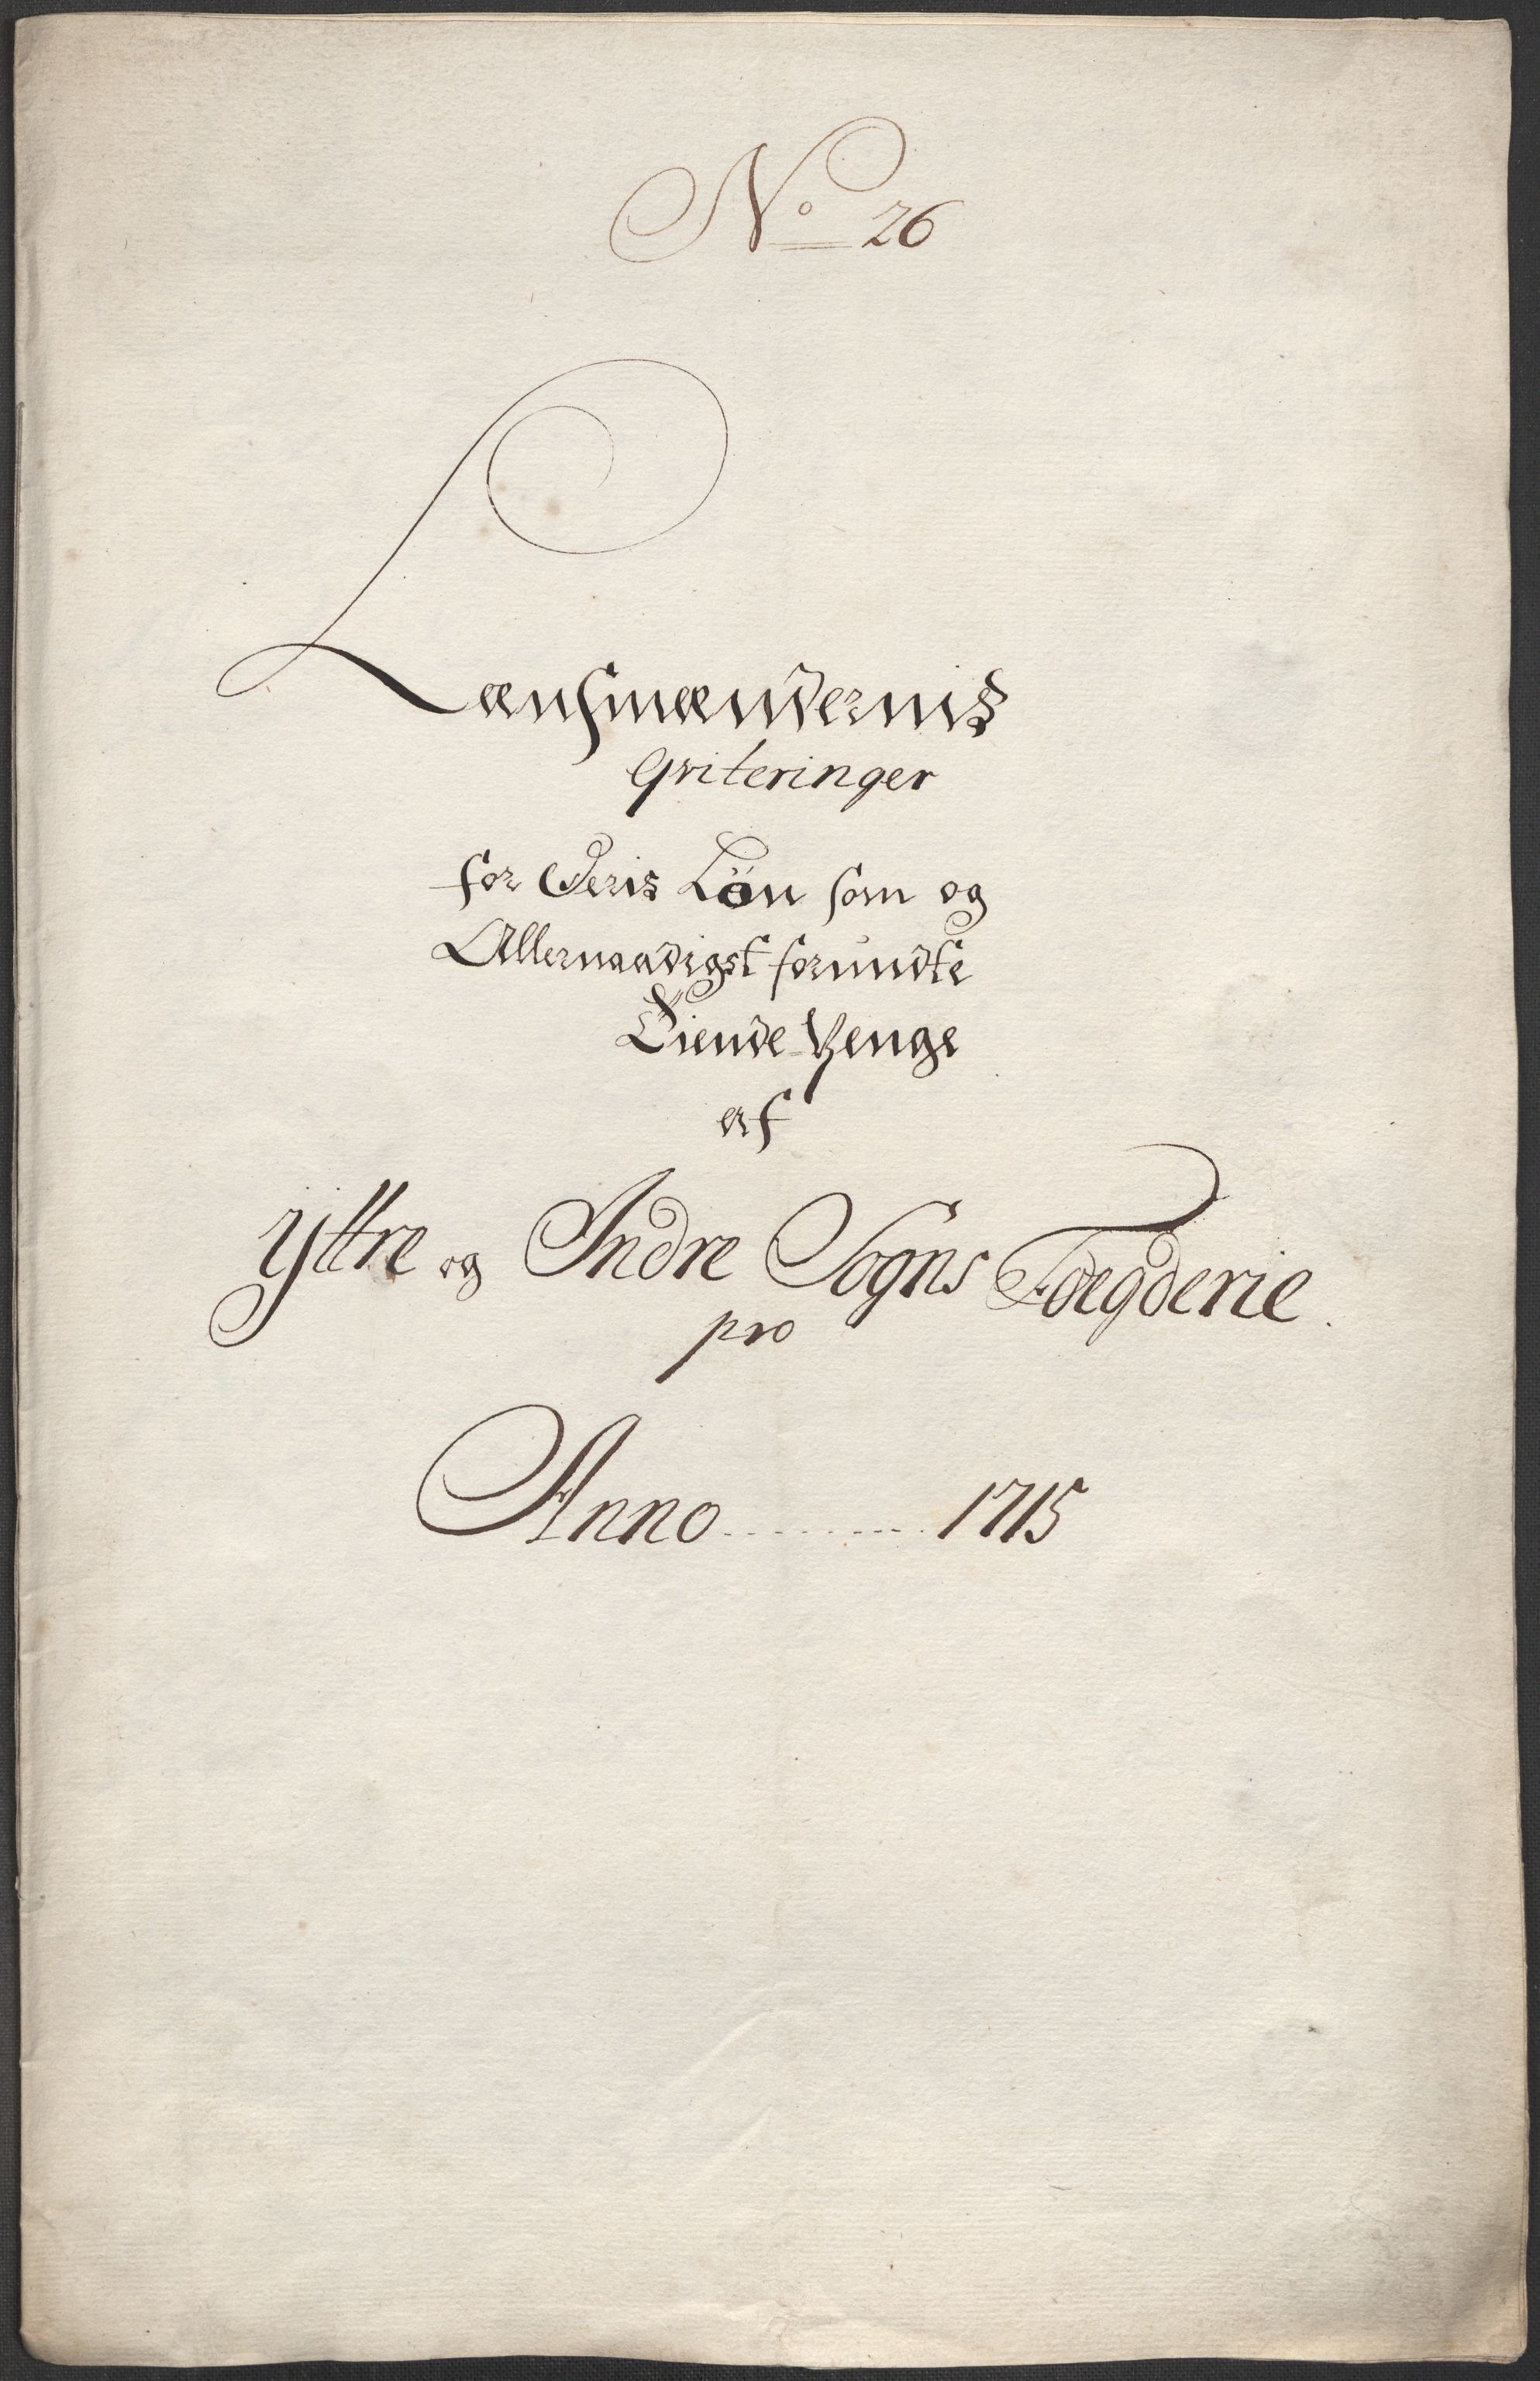 No 26
Lænsmændernis
Qviteringer
for Deris Løn som og
Allernaadigst forundte
Tiende Penge
af
Yttre og Indre Sogns Foegderie.
pro
Anno ......... 1715